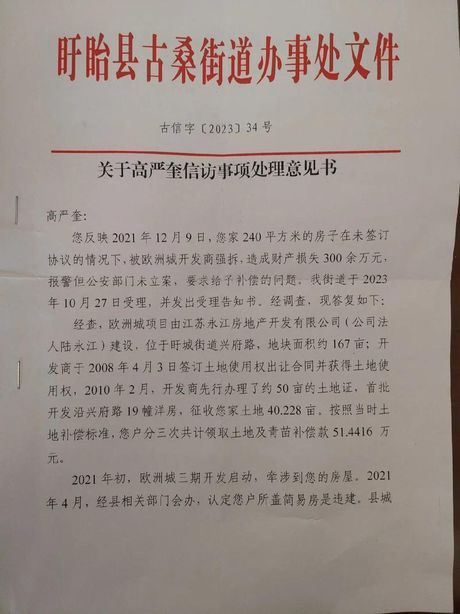 盱眙县古桑街道办事处文件
古信字〔2023〕34 号
关于高严奎信访事项处理意见书
高严奎：
您反映 2021 年 12 月 9 日，您家 240 平方米的房子在未签订
协议的情况下，被欧洲城开发商强拆，造成财产损失 300 余万元，
报警但公安部门未立案，要求给予补偿的问题，我街道于 2023
年 10 月 27 日受理，并发出受理告知书。经调查，现答复如下：
经查，欧洲城项目由江苏永江房地产开发有限公司（公司法
人陆永江）建设，位于盱城街道兴府路，地块面积约 167 亩；开
发商于 2008 年 4 月 3 日签订土地使用权出让合同并获得土地使
用权，2010 年 2 月，开发商先行办理了约 50 亩的土地证，首批
开发沿兴府路 19 幢洋房，征收您家土地 40.228 亩。按照当时土
地补偿标准，您户分三次共计领取土地及青苗补偿款 51.4416 万
元。
2021 年初，欧洲城三期开发启动，牵涉到您的房屋。2021
年 4 月，经县相关部门会办，认定您户所盖简易房是违建。县城